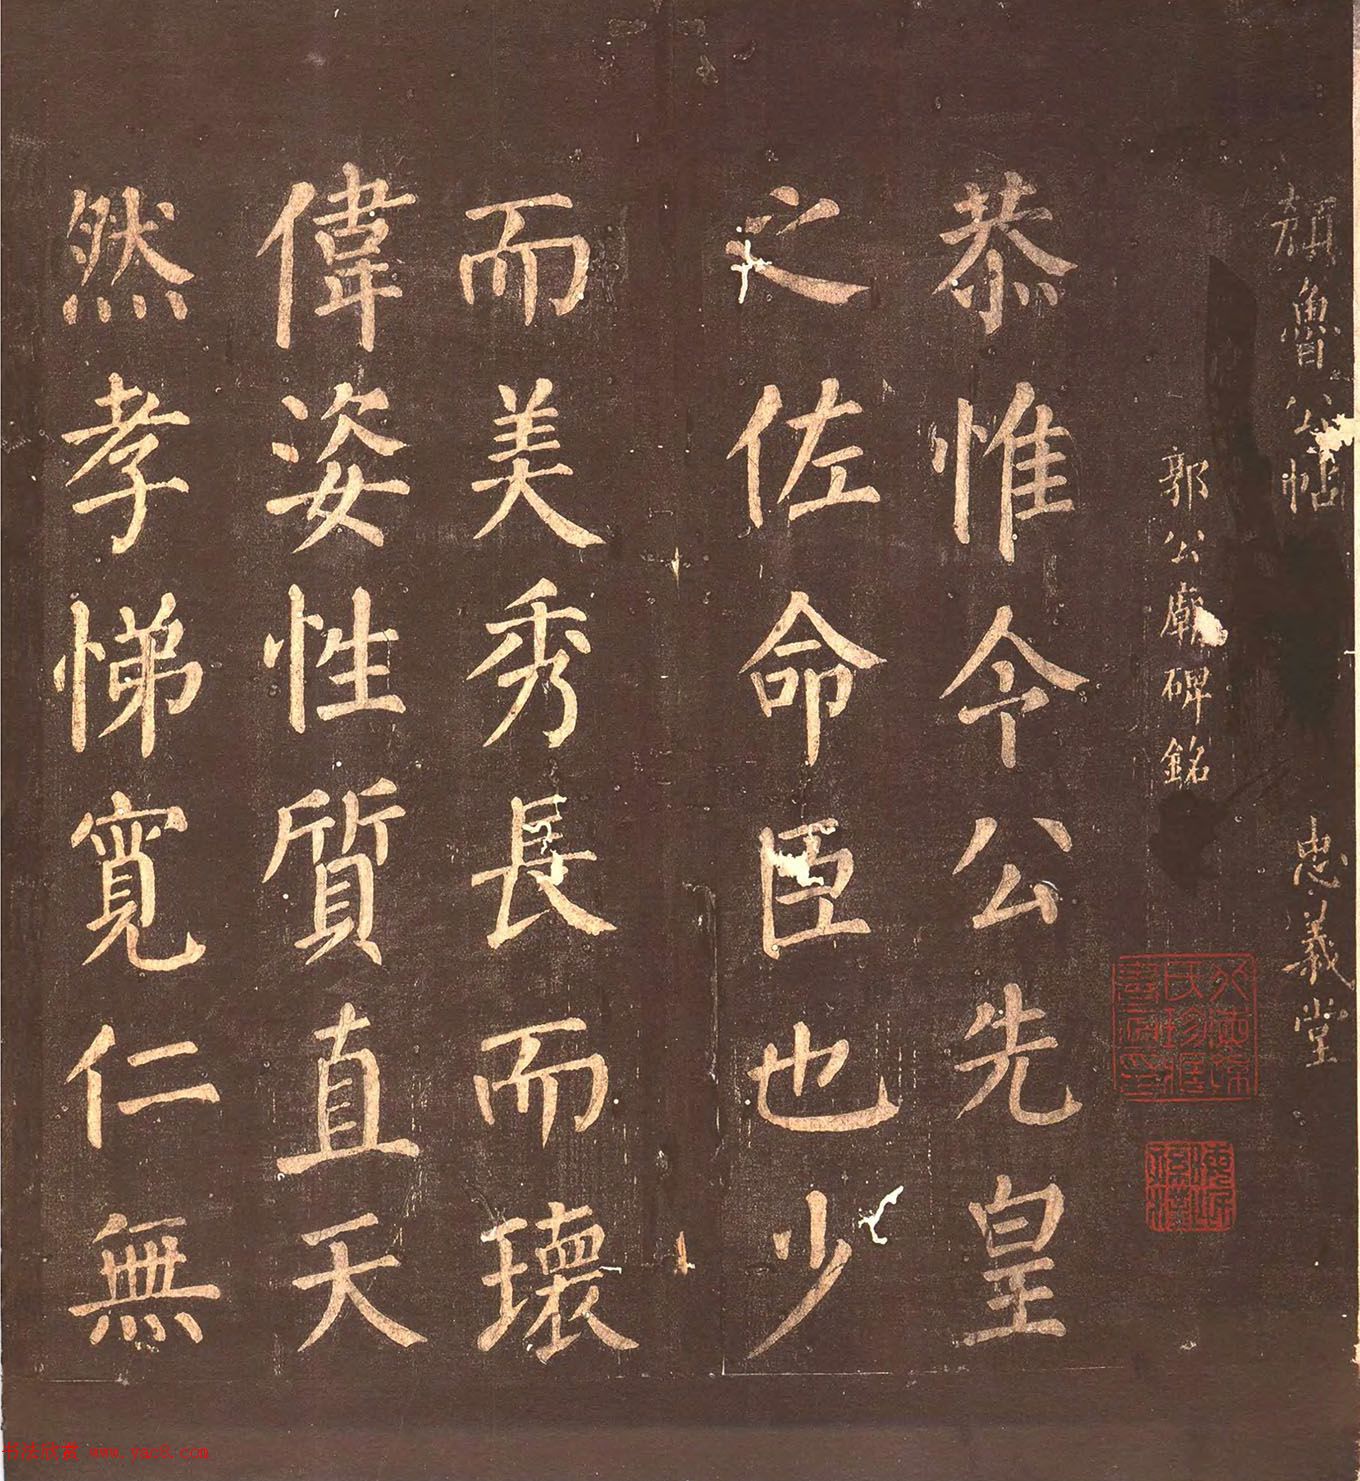 顏魯公帖 忠義堂
郭公廟碑銘
恭惟令公先皇
之佐命臣也少
而美秀長而瓌
偉姿性質直天
然孝悌寬仁無
书法欣赏 www.yac8.com